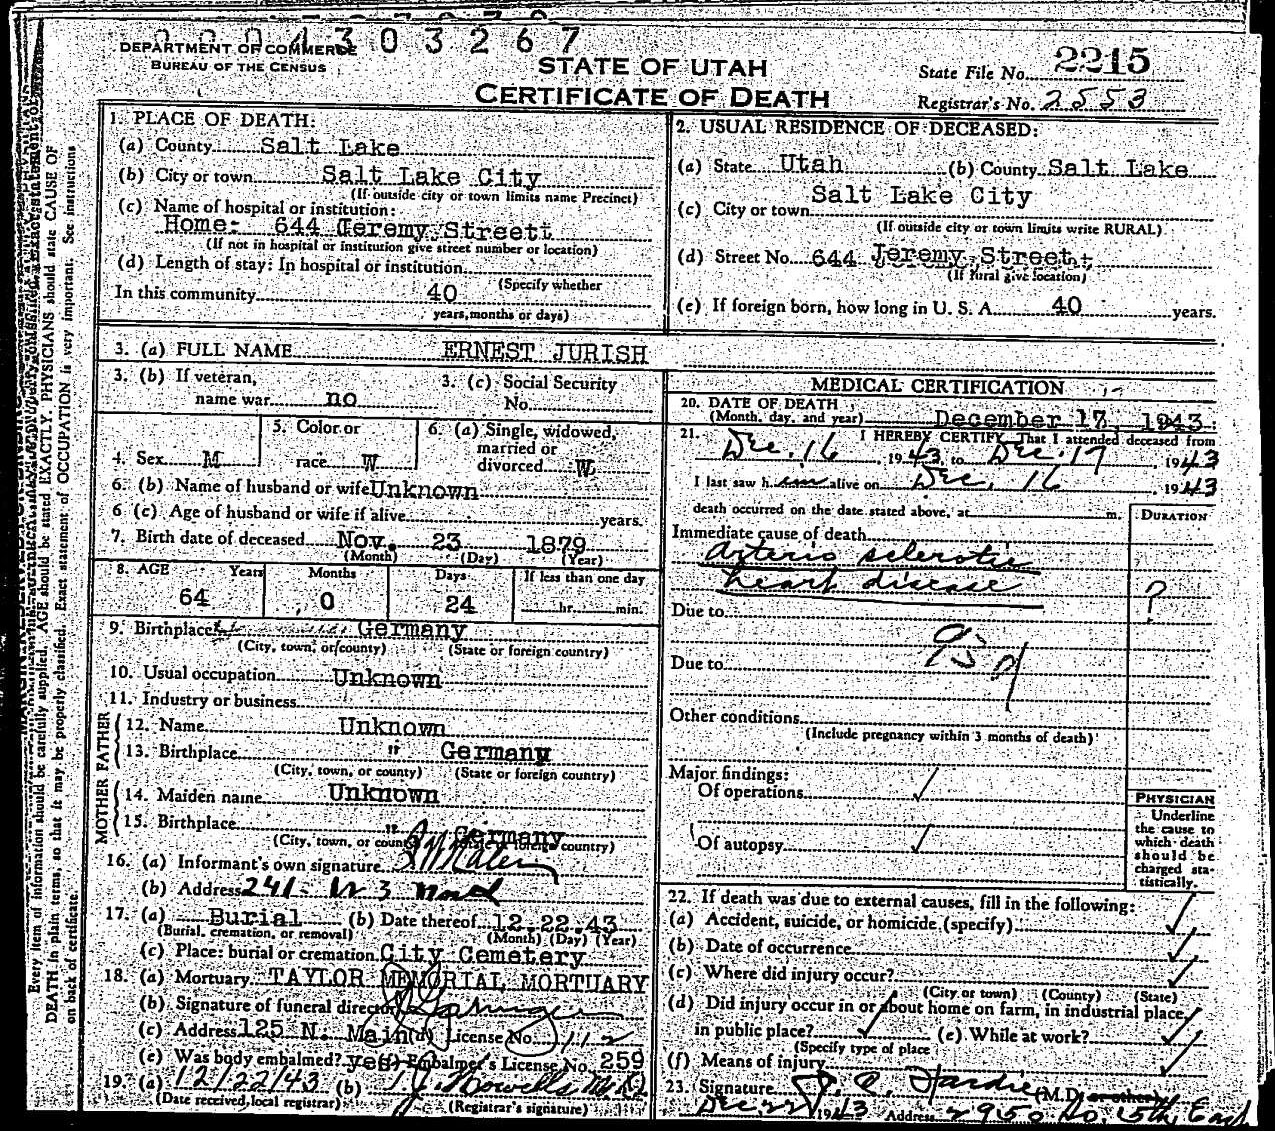 0004303267
DEPARTMENT OF COMMERCE
BUREAU OF THE CENSUS
STATE OF UTAH
CERTIFICATE OF DEATH
State File No. 2215
Registrar's No. 2553
1. PLACE OF DEATH:
(a) County Salt Lake
(b) City or town Salt Lake City
(If outside city or town limits name Precinct)
(c) Name of hospital or institution:
Home: 644 Jeremy Streett
(If not in hospital or institution give street number or location)
(d) Length of stay: In hospital or institution
(Specify whether
In this community 40
years, months or days)
2. USUAL RESIDENCE OF DECEASED:
(a) State Utah (b) County Salt Lake
Salt Lake City
(c) City or town
(If outside city or town limits write RURAL)
(d) Street No. 644 Jeremy Street
(If rural give location)
(e) If foreign born, how long in U. S. A. 40 years.
3. (a) FULL NAME ERNEST JURISH
3. (b) If veteran,
name war no
3. (c) Social Security
No.
4. Sex M
5. Color or
race W
6. (a) Single, widowed,
married or
divorced W
6. (b) Name of husband or wife Unknown
6 (c) Age of husband or wife if alive years.
7. Birth date of deceased Nov. 23 1879
(Month) (Day) (Year)
8. AGE Years Months Days If less than one day
64 0 24 hr. min.
9. Birthplace Germany
(City, town, or county) (State or foreign country)
10. Usual occupation Unknown
11. Industry or business
FATHER
12. Name Unknown
13. Birthplace " Germany
(City, town, or county) (State or foreign country)
MOTHER
14. Maiden name Unknown
15. Birthplace " Germany
(City, town, or county) (State or foreign country)
16. (a) Informant's own signature
(b) Address 241 - W 3 North
17. (a) Burial (b) Date thereof 12.22.43
(Burial, cremation, or removal) (Month) (Day) (Year)
(c) Place: burial or cremation City Cemetery
18. (a) Mortuary TAYLOR MEMORIAL MORTUARY
(b) Signature of funeral director
(c) Address 125 N. Main (d) License No. 112
(e) Was body embalmed? yes Embalmer's License No. 259
19. (a) 12/22/43 (b)
(Date received, local registrar) (Registrar's signature)
MEDICAL CERTIFICATION
20. DATE OF DEATH
(Month, day, and year) December 17, 1943
21. I HEREBY CERTIFY, That I attended deceased from
Dec. 16, 1943, to Dec. 17, 1943
I last saw him alive on Dec. 16, 1943
death occurred on the date stated above, at m.
DURATION
Immediate cause of death
Arterio sclerotic
heart disease ?
Due to
Due to
Other conditions
(Include pregnancy within 3 months of death)
Major findings:
Of operations
Of autopsy
PHYSICIAN
Underline
the cause to
which death
should be
charged sta-
tistically.
22. If death was due to external causes, fill in the following:
(a) Accident, suicide, or homicide (specify)
(b) Date of occurrence
(c) Where did injury occur?
(City or town) (County) (State)
(d) Did injury occur in or about home on farm, in industrial place,
in public place? (e) While at work?
(Specify type of place)
(f) Means of injury
23. Signature Hardie (M.D. or other)
Dec 22 1943 Address 2950 So. 15th East
Every item of information should be carefully supplied. AGE should be stated EXACTLY. PHYSICIANS should state CAUSE OF
DEATH in plain terms, so that it may be properly classified. Exact statement of OCCUPATION is very important. See instructions
on back of certificate